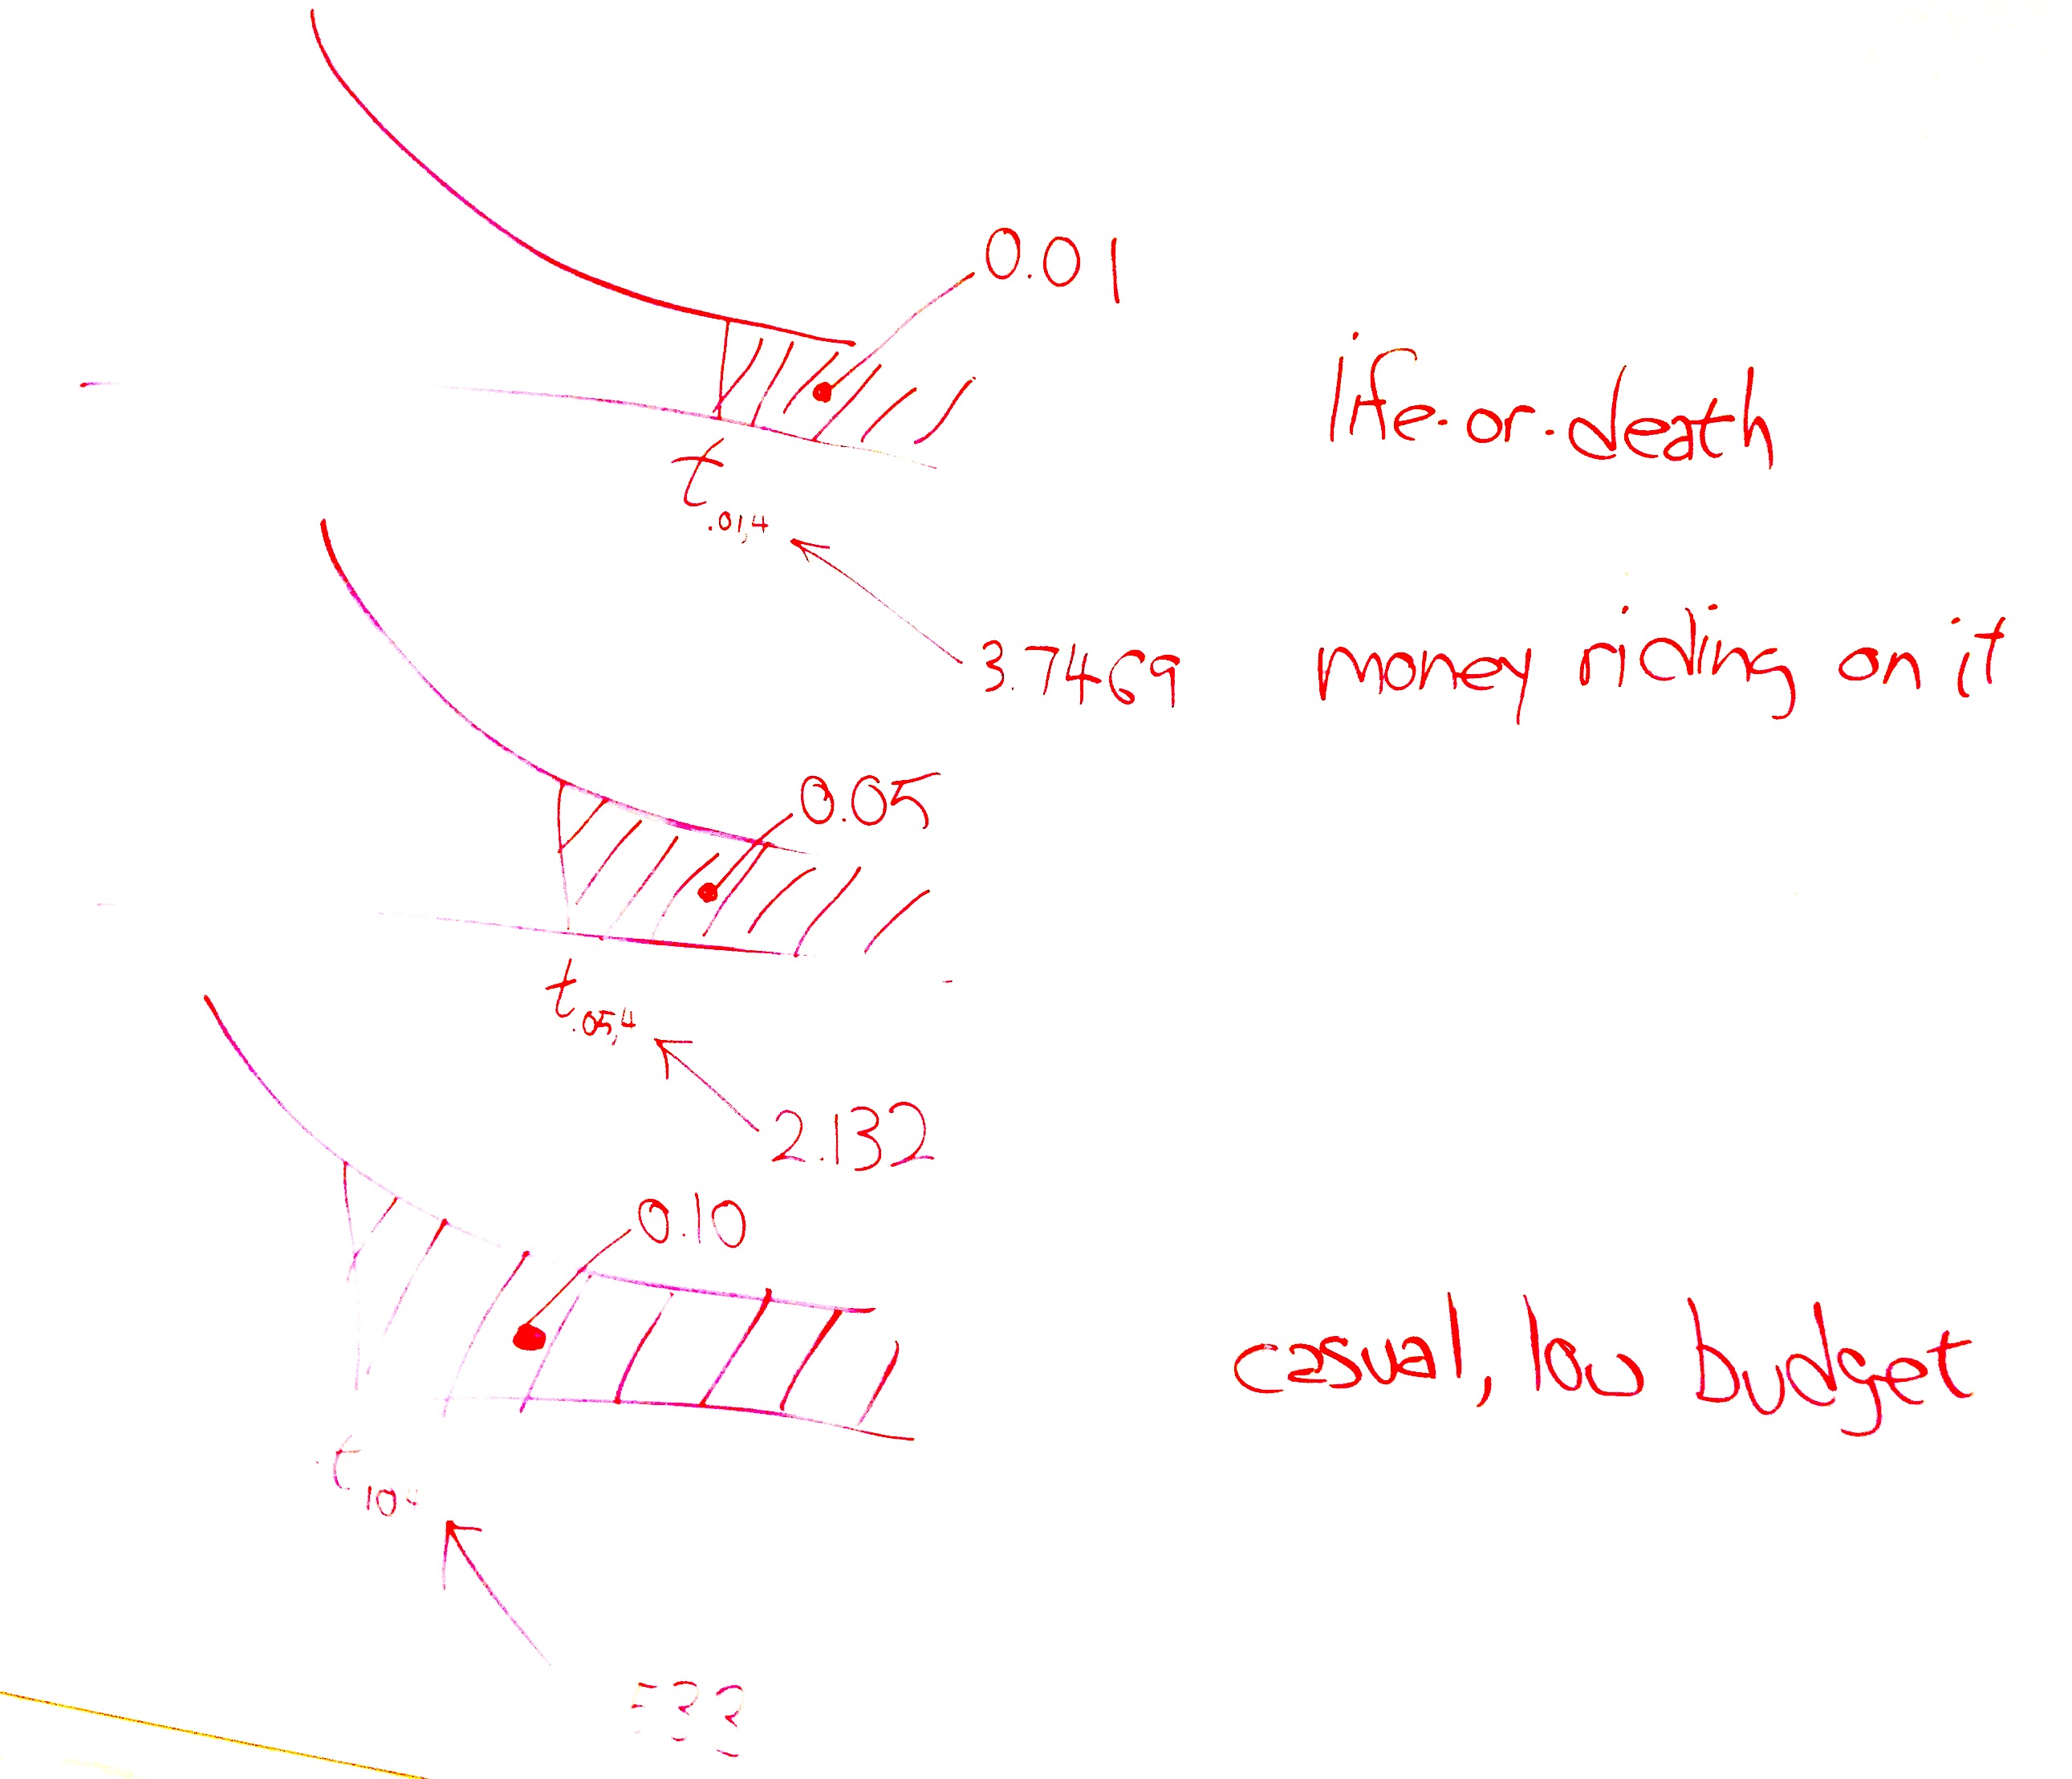 0.01
life-or-death
t.01,4
3.7469
money riding on it
0.05
t.05,4
2.132
0.10
casual, low budget
t10
533